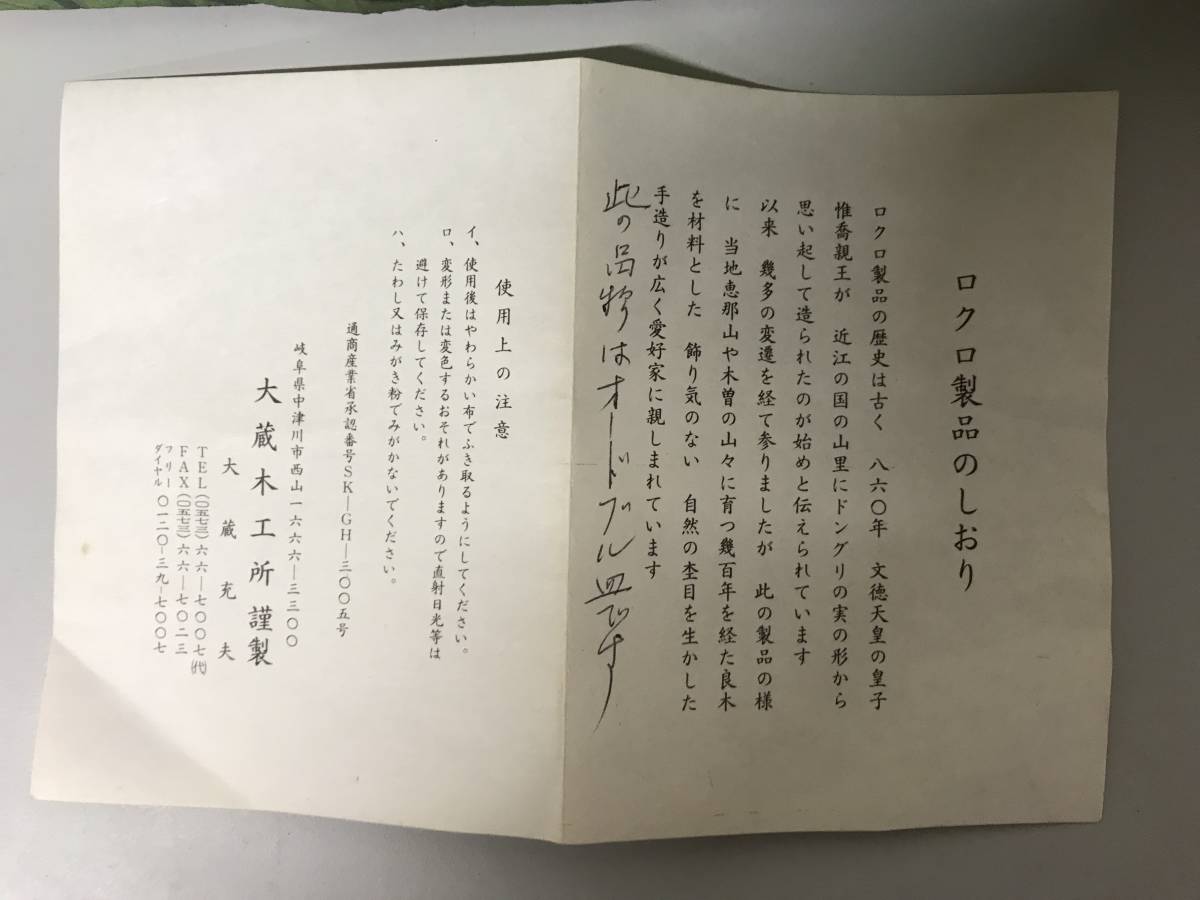 ロクロ製品のしおり
ロクロ製品の歴史は古く 八六〇年 文徳天皇の皇子
惟喬親王が 近江の国の山里にドングリの実の形から
思い起して造られたのが始めと伝えられています
以来 幾多の変遷を経て参りましたが 此の製品の様
に 当地恵那山や木曽の山々に育つ幾百年を経た良木
を材料とした 飾り気のない 自然の杢目を生かした
手造りが広く愛好家に親しまれています
此の品物はオードブル皿です
使用上の注意
イ、使用後はやわらかい布でふき取るようにしてください。
ロ、変形または変色するおそれがありますので直射日光等は
避けて保存してください。
ハ、たわし又はみがき粉でみがかないでください。
通商産業省承認番号SK―GH―三〇〇五号
岐阜県中津川市西山一六六六―三三〇〇
大蔵木工所謹製
大蔵充夫
TEL(〇五七三)六六―七〇〇七(代)
FAX(〇五七三)六六―七〇二三
フリーダイヤル 〇一二〇―三九―七〇〇七